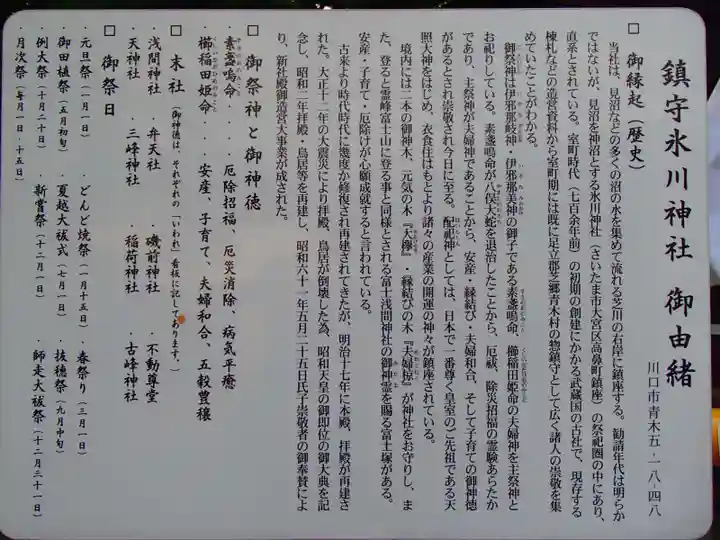 鎮守氷川神社 御由緒
川口市青木五-一八-四八
□ 御縁起(歴史)
当社は、見沼などの多くの沼の水を集めて流れる芝川の右岸に鎮座する。勧請年代は明らか
ではないが、見沼を神沼とする氷川神社(さいたま市大宮区高鼻町鎮座)の祭祀圏の中にあり、
直系とされている。室町時代(七百余年前)の初期の創建にかかる武蔵国の古社で、現存する
棟札などの造営資料から室町期には既に足立郡芝郷青木村の惣鎮守として広く諸人の崇敬を集
めていたことがわかる。
御祭神は伊邪那岐神・伊邪那美神の御子である素盞嗚命、櫛稲田姫命の夫婦神を主祭神と
お祀りしている。素盞嗚命が八俣大蛇を退治したことから、厄祓、除災招福の霊験あらたか
であり、主祭神が夫婦神であることから、安産・縁結び・夫婦和合、そして子育ての御神徳
があるとされ崇敬され今日に至る。配祀神としては、日本で一番尊く皇室のご先祖である天
照大神をはじめ、衣食住はもとより諸々の産業の開運の神々が鎮座されている。
境内には二本の御神木、元気の木『大欅』・縁結びの木『夫婦椋』が神社をお守りし、ま
た、登ると霊峰富士山に登る事と同様とされる富士浅間神社の御神霊を賜る富士塚がある。
安産・子育て・厄除けが心願成就すると言われている。
古来より時代時代に幾度か修復され再建されてきたが、明治十七年に本殿、拝殿が再建さ
れた。大正十二年の大震災により拝殿、鳥居が倒壊した為、昭和天皇の御即位の御大典を記
念し、昭和二年拝殿・鳥居等を再建し、昭和六十一年五月二十五日氏子崇敬者の御奉賛によ
り、新社殿御造営大事業が成された。
□ 御祭神と御神徳
・素盞嗚命 ・・・ 厄除招福、厄災消除、病気平癒
・櫛稲田姫命 ・・・ 安産、子育て、夫婦和合、五穀豊穣
□ 末社(御神徳は、それぞれの「いわれ」看板に記してあります。)
・浅間神社 ・弁天社 ・磯前神社 ・不動尊堂
・天神社 ・三峰神社 ・稲荷神社 ・古峰神社
□ 御祭日
・元旦祭(一月一日) ・どんど焼祭(一月十五日) ・春祭り(三月一日)
・御田植祭(五月初旬) ・夏越大祓式(七月一日) ・抜穂祭(九月中旬)
・例大祭(十月二十日) ・新嘗祭(十二月一日) ・師走大祓祭(十二月三十一日)
・月次祭(毎月一日・十五日)